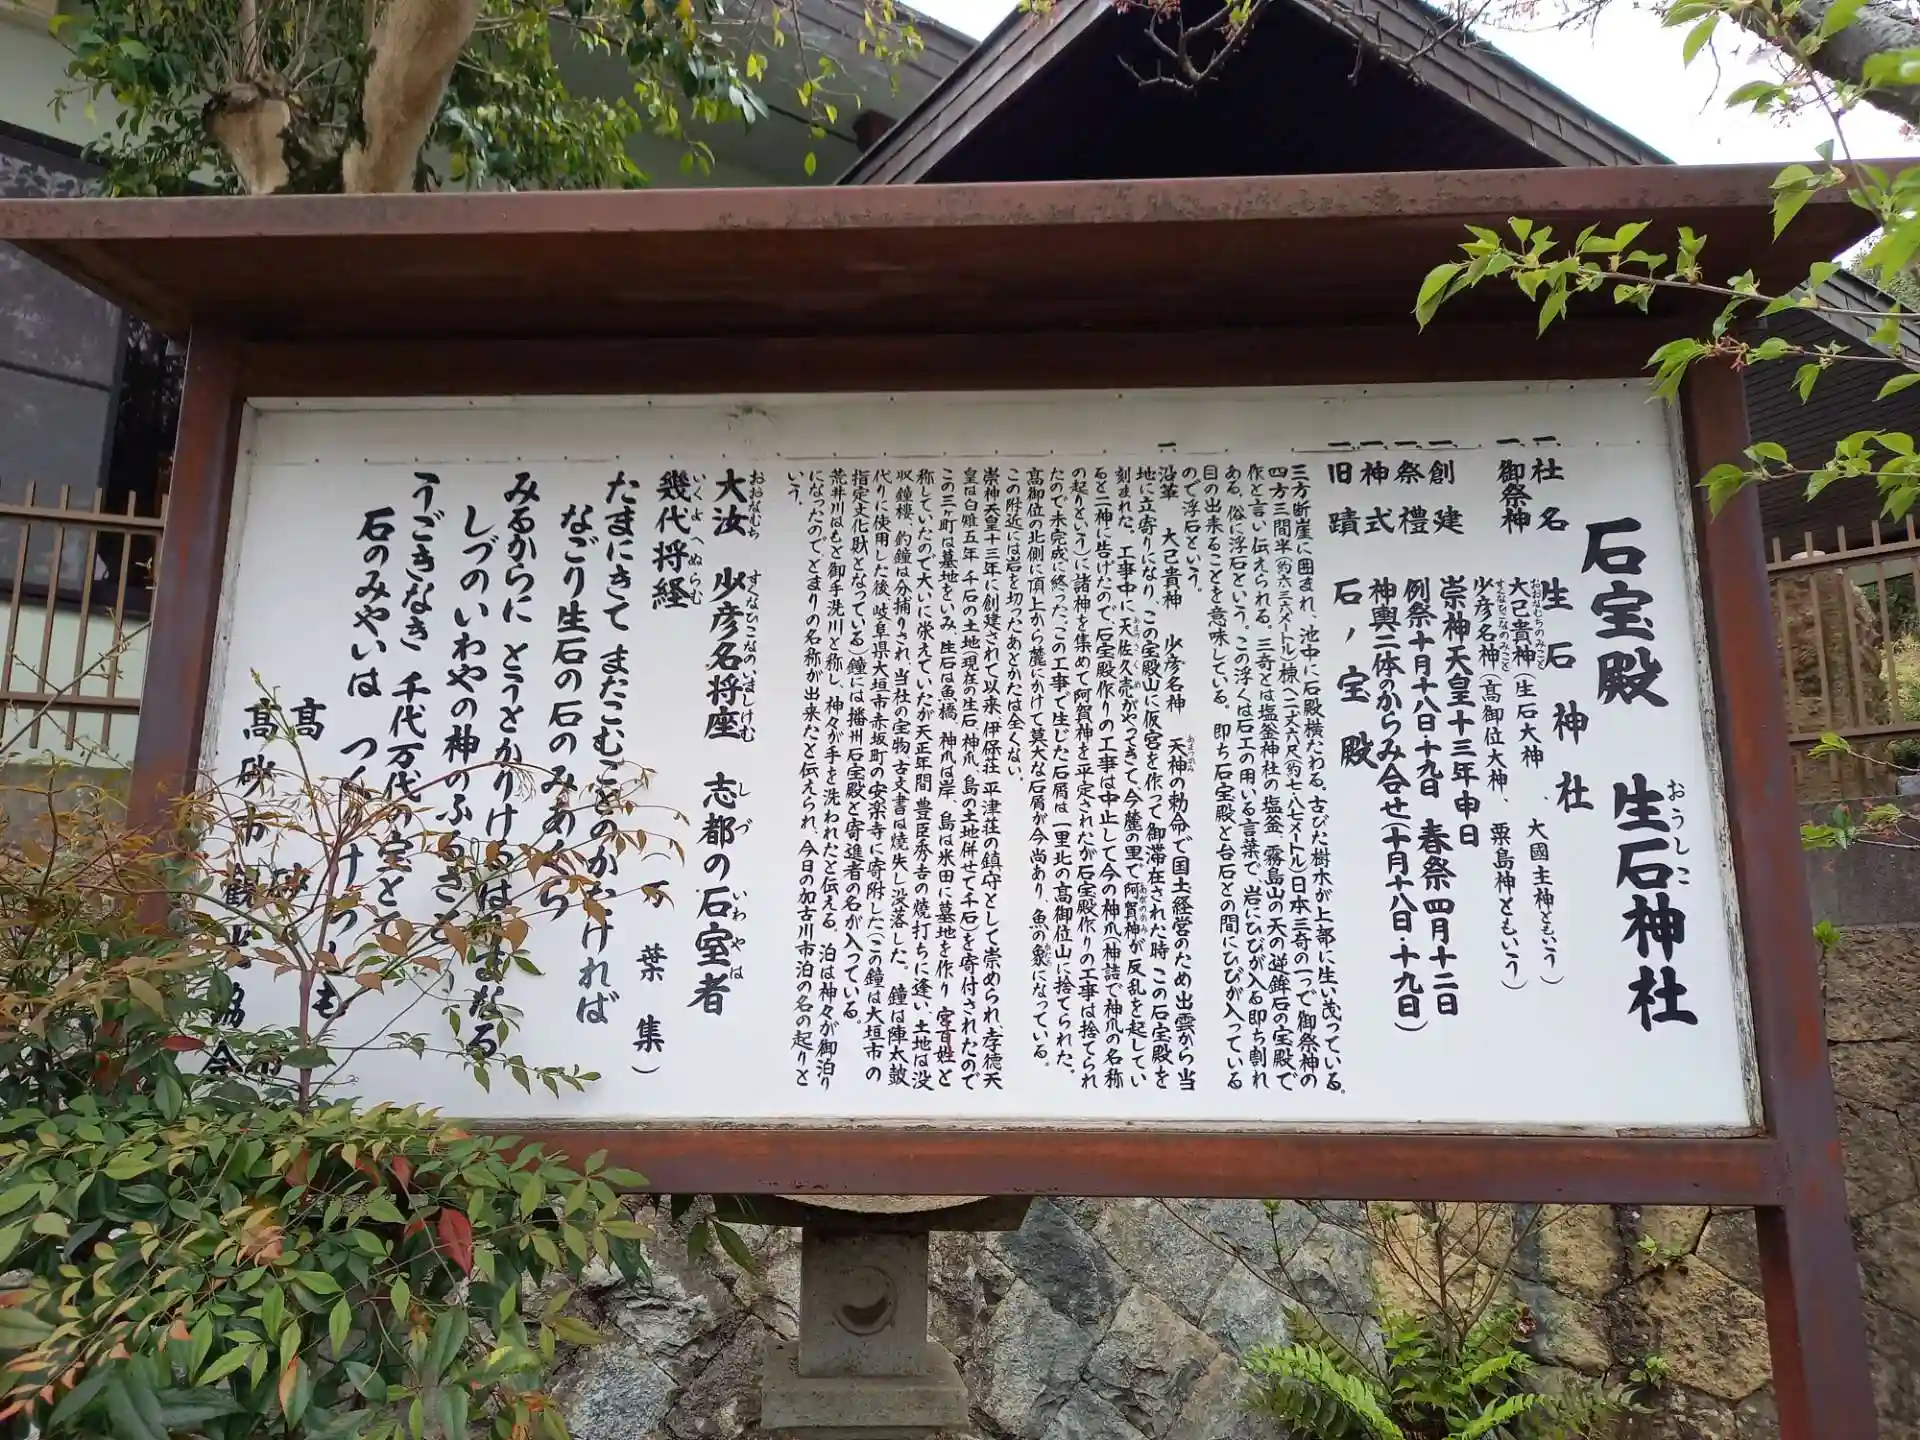 石宝殿 生石神社
おうしこ
一、社名 生石神社
一、御祭神 大己貴神(生石大神、大國主神ともいう)
おおなむちのみこと
少彦名神(高御位大神、粟島神ともいう)
すくなひこなのみこと
一、創建 崇神天皇十三年申日
一、祭禮 例祭十月十八日十九日 春祭四月十二日
一、神式 神輿二体のからみ合せ(十月十八日・十九日)
一、旧蹟 石ノ宝殿
三方断崖に囲まれ、池中に石殿横たわる。古びた樹木が上部に生い茂っている。
四方三間半(約六・三六メートル)棟へ二丈六尺(約七・八七メートル)日本三奇の一つで御祭神の
作と言い伝えられる。三奇とは塩釜神社の塩釜、霧島山の天の逆鉾石の宝殿で
ある、俗に浮石という。この浮くは石工の用いる言葉で、岩にひびが入る即ち割れ
目の出来ることを意味している。即ち石宝殿と台石との間にひびが入っている
ので浮石という。
一、沿革 大己貴神 少彦名神 天神の勅命で国土経営のため出雲から当
あまつかみ
地に立寄りになり、この宝殿山に仮宮を作って御滞在された時 この石宝殿を
刻まれた。工事中に天佐久売がやってきて、今麓の里で阿賀神が反乱を起してい
ると二神に告げたので、石宝殿作りの工事は中止して今の神爪(神詰で神爪の名称
の起りという)に諸神を集めて阿賀神を平定されたが石宝殿作りの工事は捨てられ
たので未完成に終った、この工事で生じた石屑は一里北の高御位山に捨てられた。
高御位の北側に頂上から麓にかけて莫大な石屑が今尚あり、魚の象になっている。
この附近には岩を切ったあとかたは全くない。
崇神天皇十三年に創建されて以来、伊保荘、平津荘の鎮守として崇められ、孝徳天
皇は白雉五年 千石の土地(現在の生石、神爪、島の土地併せて千石)を寄付されたので
この三ヶ町は墓地をいみ、生石は魚橋、神爪は岸、島は米田に墓地を作り 宮百姓と
称していたので大いに栄えていたが天正年間 豊臣秀吉の焼打ちに逢い、土地は没
収、鐘楼、釣鐘は分捕りされ、当社の宝物 古文書は焼失し没落した。鐘は陣太鼓
代りに使用した後、岐阜県大垣市赤坂町の安楽寺に寄附した(この鐘は大垣市の
指定文化財となっている)鐘には播州石宝殿と寄進者の名が入っている。
荒井川はもと御手洗川と称し、神々が手を洗われたと伝える。泊は神々が御泊り
になったのでとまりの名称が出来たと伝えられ、今日の加古川市泊の名の起りと
いう。
大汝 少彦名将座 志都の石室者
おおなむち すくなひこなの いましけむ しづ いわやは
幾代将経 (万葉集)
いくよへぬらむ
たまにきて またこむことのかたければ
なごり生石の石のみあくら
みるからに とうとかりける
しづのいわやの神のふるさと
うごきなき 千代万代の宝とて
石のみやいは
高砂市
高砂市観光協会